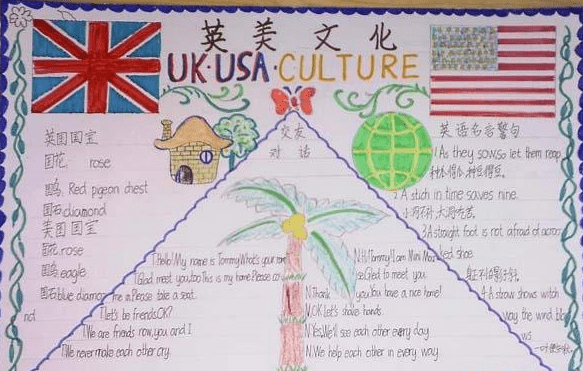 英美文化
UK·USA·CULTURE
英国国宝
国花 rose
国鸟 Red pigeon chest
国石 diamond
美国国宝
国花 rose
国鸟 eagle
国石 blue diamond
交友
对话
T Hello! My name is Tommy What's your name
T Glad meet you, too This is my home. Please
me in. Please take a seat.
T Let's be friends, OK?
T We are friends now, you and I
T We never make each other cry.
N. Hi! Tommy I am Mini
Glad to meet you.
N. Thank you You have a nice home!
N. OK Let's shake hands.
N. Yes, We'll see each other every day.
N. We help each other in every way.
英语名言警句
1 As they sow, so let them reap
2. A stich in time saves nine.
3 A straight foot is not afraid of a crooked shoe
4 A straw shows witch
way the wind blo
ws.